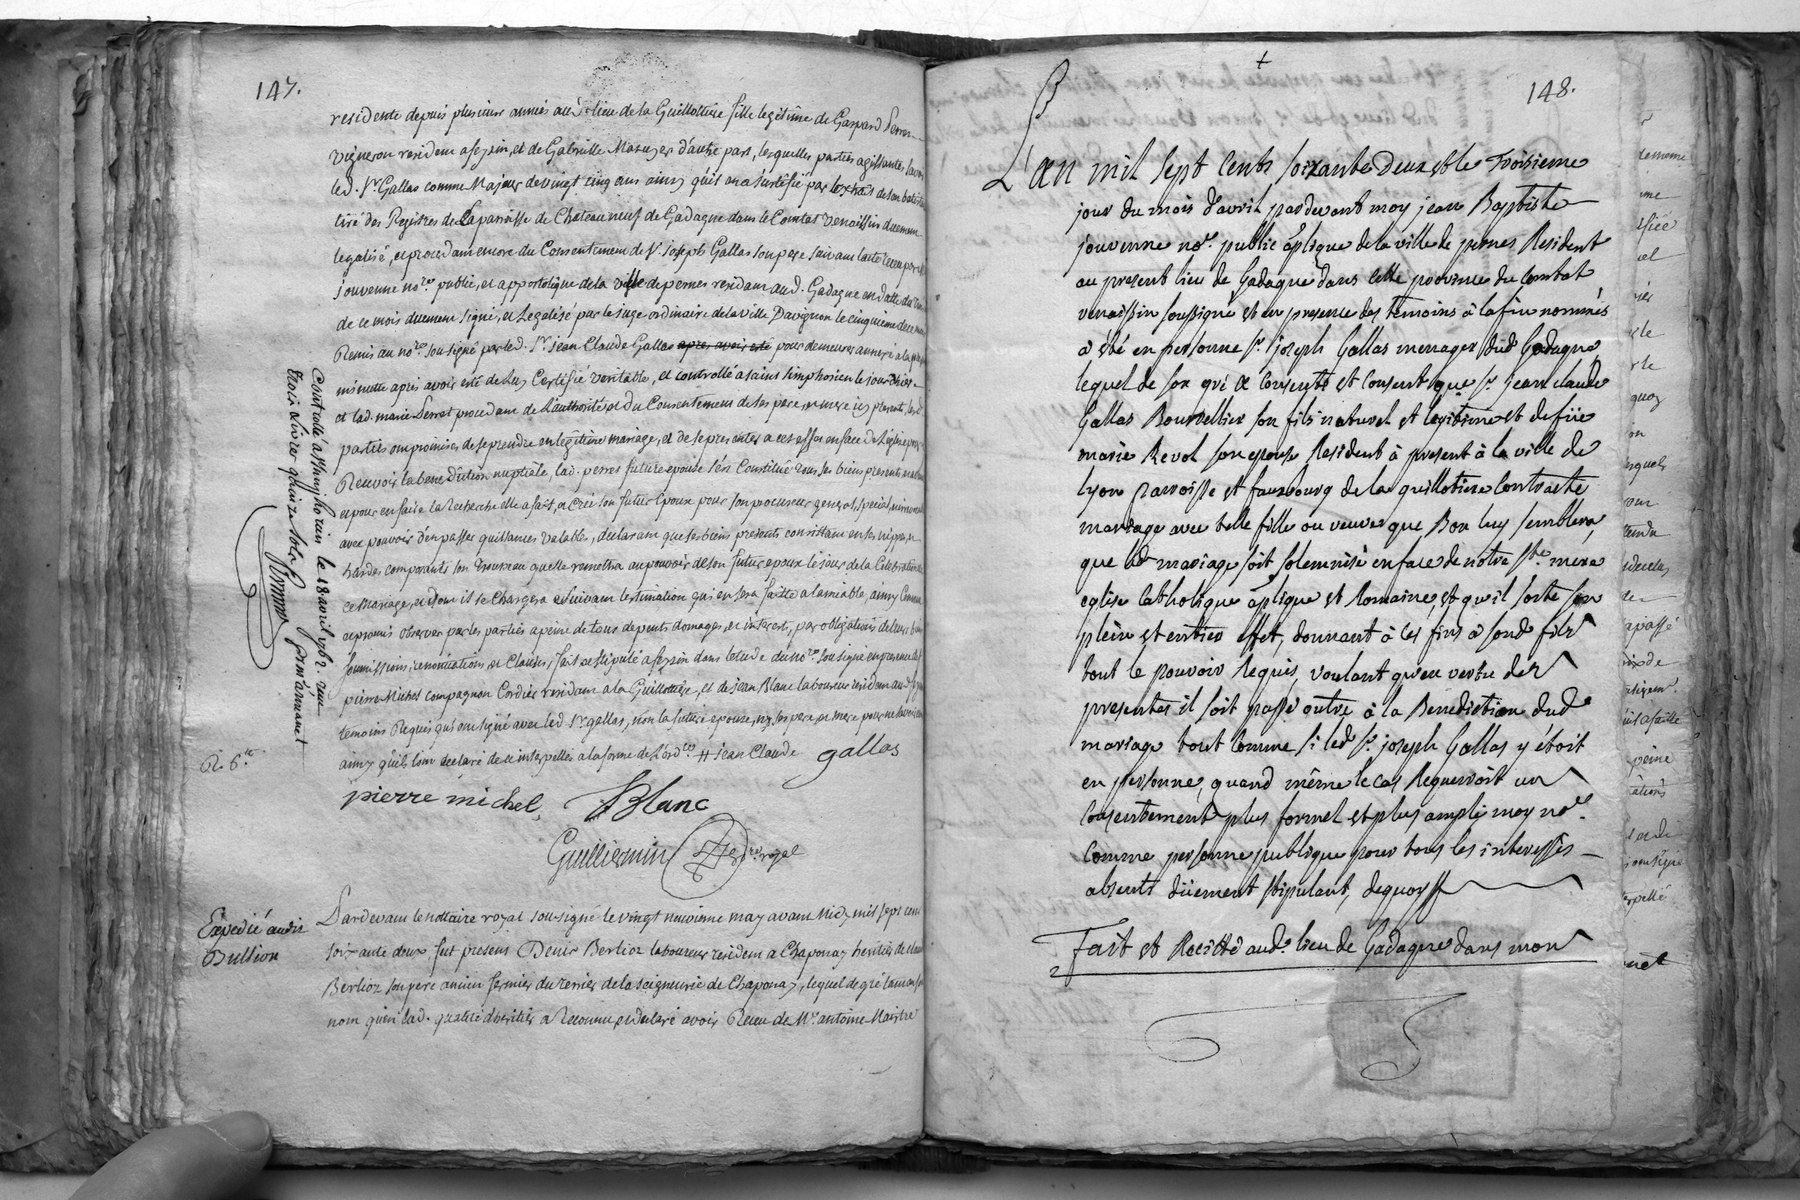 147.
residente depuis plusieurs années aud. lieu de la Guillottiere fille legitime de Gaspard Perret
vigneron residem a feysin, et de Gabrielle Mazuyer d'autre part, lesquelles parties agissantes, savoir
led. Sr. Gallas comme Majeur de vingt cinq ans ainsy qu'il en a justifié par lextrais de son batistere
tiré des Registres de La parroisse de Chateauneuf de Gadagne dans le Comtat venaissin duemen
legalisé, et procedam encore du Consentement de Sr. Joseph Gallas son pere suivam lacte receu par
jouvenne nore. public, et appostolique de la ville de pernes residam aud. Gadagne en datte du trois
de ce mois duemem signé, et Legalisé par le juge ordinaire de la ville Davignon le cinquieme de ce mois
Remis au nore. sousigné par led. Sr. jean Claude Gallas apres avoir esté pour demeurer annexé a la presente
minutte apres avoir esté de luy Certifié veritable, et controllé a saint simphorien le jourdhier
et lad. marie Perret procedam de L'authorité et du Consentement de ses pere, et mere icy presents, lesd.
parties ont promises de se prendre en legitime mariage, et de se presenter a cet effet en face de Léglise pour y
Recevoir la benediction nuptiale, lad. perret future epouse s'est Constitué tous ses biens presents et a venir
et pour en faire la Recherche elle a fait, et créé son futur Epoux pour son procureur general, special, irrevocable
avec pouvoir d'en passer quittances valable, declaram que ses biens presents consistam en ses nippes, et
hardes composants son trousseau quelle remettra au pouvoir de son futur epoux le jour de la Celebration
ce Mariage, et dom il se Chargera suivam lestimation qui en sera faitte a lamiable, ainsy Convenu
et promis observer par les parties a peine de tous depents domages, et interests, par obligations de leurs biens
soumissions, renonciations, et Clauses, fait et stipulé a feysin dans letude du nore. sousigné en presence de
pierre Michel compagnon Cordier residam a la Guillottiere, et de jean Blanc laboureur residam aud. feysin
temoins Requis qui ont signé avec led. Sr. gallas, non la future epouse, ny ses pere, et mere pour ne savoir
ainsy qu'ils l'ont declaré de ce interpellés a la forme de L'ordce. # jean Claude gallas
pierre michel. Blanc
Guilliermin nore. royal
Controllé a st simphorien le 18 avril 1762 recu
trois Livres quinze sols
R. 6.
Expedié aud. sr.
Bullion
Pardevam le nottaire royal sousigné le vingt neuvieme may avam midy mil sept cent
soixante deux fut presem Denis Berlioz laboureur residem a Chaponay heritier de
Berlioz son pere ancien fermier du terrier de la seigneurie de Chaponay, lequel de gré tam en son
nom quen lad. qualité d'heritier a Reconnu, et declaré avoir Receu de Mre. antoine Maistre
148.
L'an mil sept cents soixante deux et le troisieme
jour du mois d'avril pardevant moy jean Baptiste
jouvenne nore. public aplique de la ville de pernes Resident
au present lieu de Gadagne dans cette province du Comtat
venaissin soussigné et en presence des temoins à la fin nommés
a eté en personne sr. joseph Gallas menager dud Gadagne
lequel de son gré a consenti et consent que sr. jean claude
Gallas Bourrellier son fils naturel et legitime et de fue
marie Revol son epouse Resident à present à la ville de
lyon parroisse et fauxbourg de la guillotiere Contracte
mariage avec telle fille ou veuve que Bon luy semblera,
que led mariage soit solemnisé en face de notre ste. mere
eglise Catholique aplique et Romaine, et qu'il sorte son
plein et entier effet, donnant à ces fins a sond fils
tout le pouvoir Requis, voulant qu'en vertu des
presentes il soit passé outre à la Benediction dud
mariage tout comme si led sr. joseph Gallas y étoit
en personne, quand même le cas Requerroit un
consentement plus formel et plus ample moy nore.
comme personne publique pour tous les interessés
absents düement stipulant, dequoy
Fait et Recitté aud. lieu de Gadagne dans mon